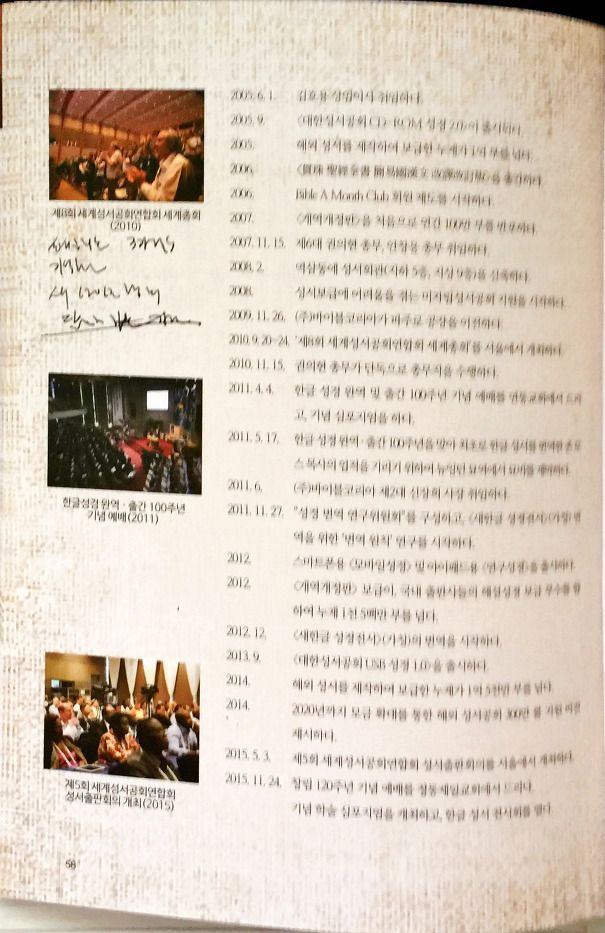 2005. 6. 1. 김호용 상임이사 취임하다.
2005. 9. 〈대한성서공회 CD-ROM 성경 2.0〉이 출시되다.
2005. 해외 성서를 제작하여 보급한 누계가 1억 부를 넘다.
2006. 〈貫珠 聖經全書 簡易國漢文 改譯改訂版〉을 출간하다.
2006. Bible A Month Club 회원 제도를 시작하다.
2007. 〈개역개정판〉을 처음으로 연간 100만 부를 반포하다.
2007. 11. 15. 제6대 권의현 총무, 안창용 총무 취임하다.
2008. 2. 역삼동에 성서회관(지하 5층, 지상 9층)을 신축하다.
2008. 성서보급에 어려움을 겪는 미자립성서공회 지원을 시작하다.
2009. 11. 26. (주)바이블코리아가 파주로 공장을 이전하다.
2010. 9. 20-24. '제8회 세계성서공회연합회 세계총회'를 서울에서 개최하다.
2010. 11. 15. 권의현 총무가 단독으로 총무직을 수행하다.
2011. 4. 4. 한글 성경 완역 및 출간 100주년 기념 예배를 연동교회에서 드리
고, 기념 심포지엄을 하다.
2011. 5. 17. 한글 성경 완역·출간 100주년을 맞아 최초로 한글 성서를 번역한 존 로
스 목사의 업적을 기리기 위하여 뉴잉턴 묘역에서 묘비를 제막하다.
2011. 6. (주)바이블코리아 제2대 신장희 사장 취임하다.
2011. 11. 27. "성경 번역 연구위원회"를 구성하고, 〈새한글 성경전서〉(가칭) 번
역을 위한 '번역 원칙' 연구를 시작하다.
2012. 스마트폰용 〈모바일성경〉 및 아이패드용 〈연구성경〉을 출시하다.
2012. 〈개역개정판〉 보급이, 국내 출판사들의 해설성경 보급 부수를 합
하여 누계 1천 5백만 부를 넘다.
2012. 12. 〈새한글 성경전서〉(가칭)의 번역을 시작하다.
2013. 9. 〈대한성서공회 USB 성경 1.0〉을 출시하다.
2014. 해외 성서를 제작하여 보급한 누계가 1억 5천만 부를 넘다.
2014. 2020년까지 모금 확대를 통한 해외 성서공회 300만 불 지원 비전
제시하다.
2015. 5. 3. 제5회 세계성서공회연합회 성서출판회의를 서울에서 개최하다.
2015. 11. 24. 창립 120주년 기념 예배를 정동제일교회에서 드리다.
기념 학술 심포지엄을 개최하고, 한글 성서 전시회를 열다.
제8회 세계성서공회연합회 세계총회
(2010)
한글성경 완역·출간 100주년
기념 예배(2011)
제5회 세계성서공회연합회
성서출판회의 개최(2015)
58